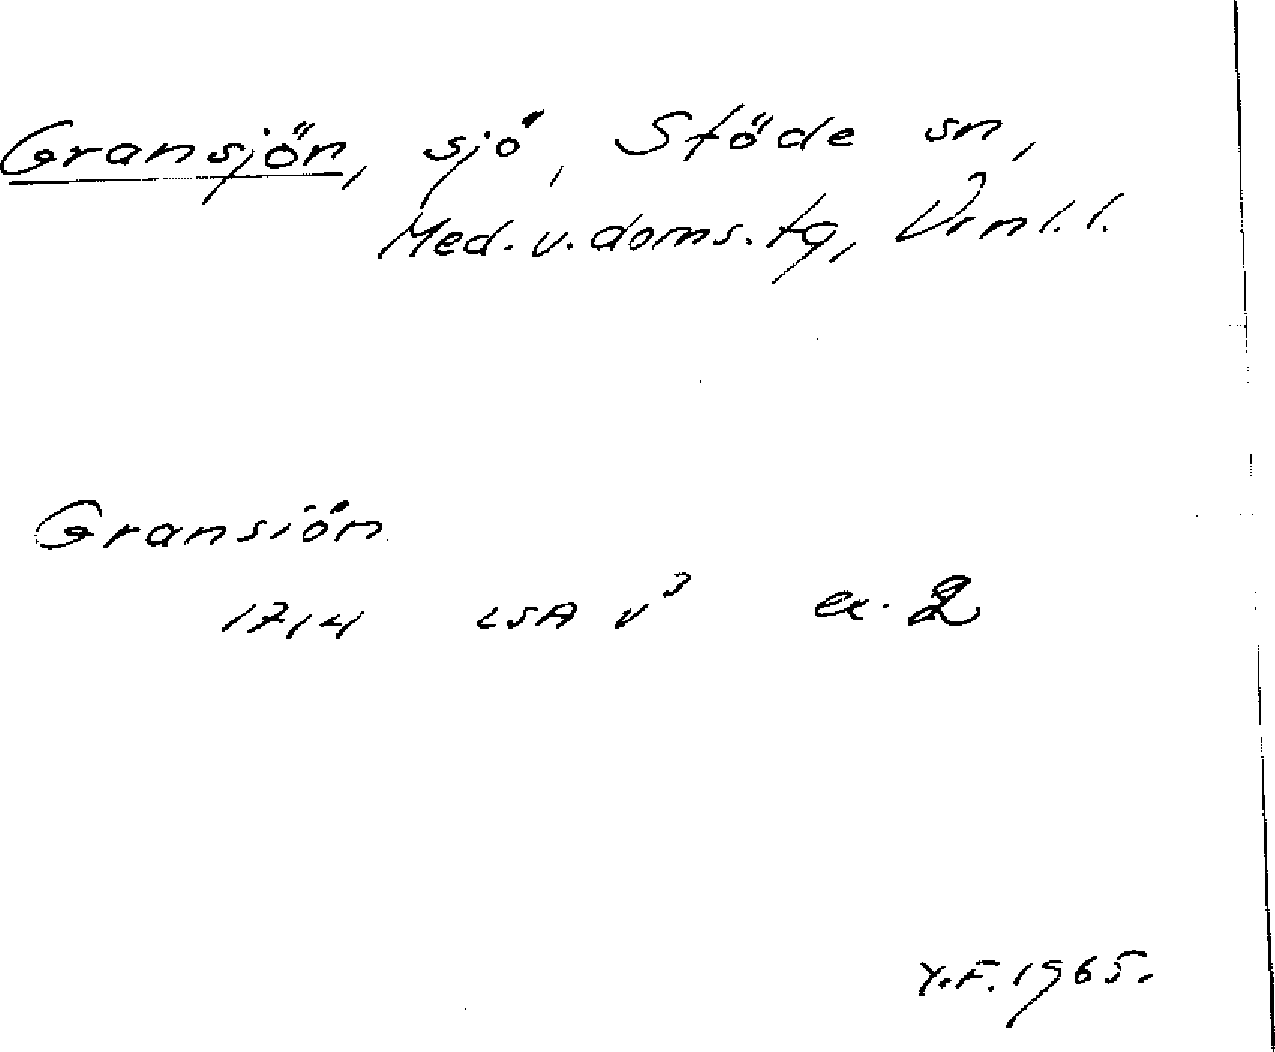 Gransjön, sjö, Stöde sn,
Med. v. doms. tg, Vrnl. l.
Gransiön
1714 LSA V³ ex. 2
Y.F. 1965.